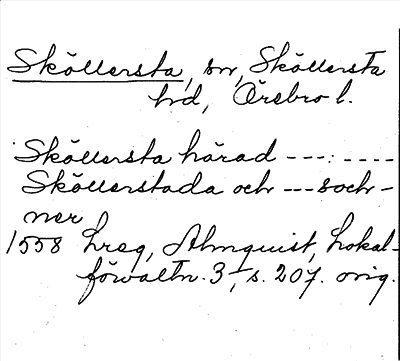 Sköllersta, sn, Sköllersta
hd, Örebro l.
Sköllersta härad ---:----
Sköllerstada och --- soch-
ner
1558 hreg, Almquist, Lokal-
förvaltn. 3, s. 207. orig.